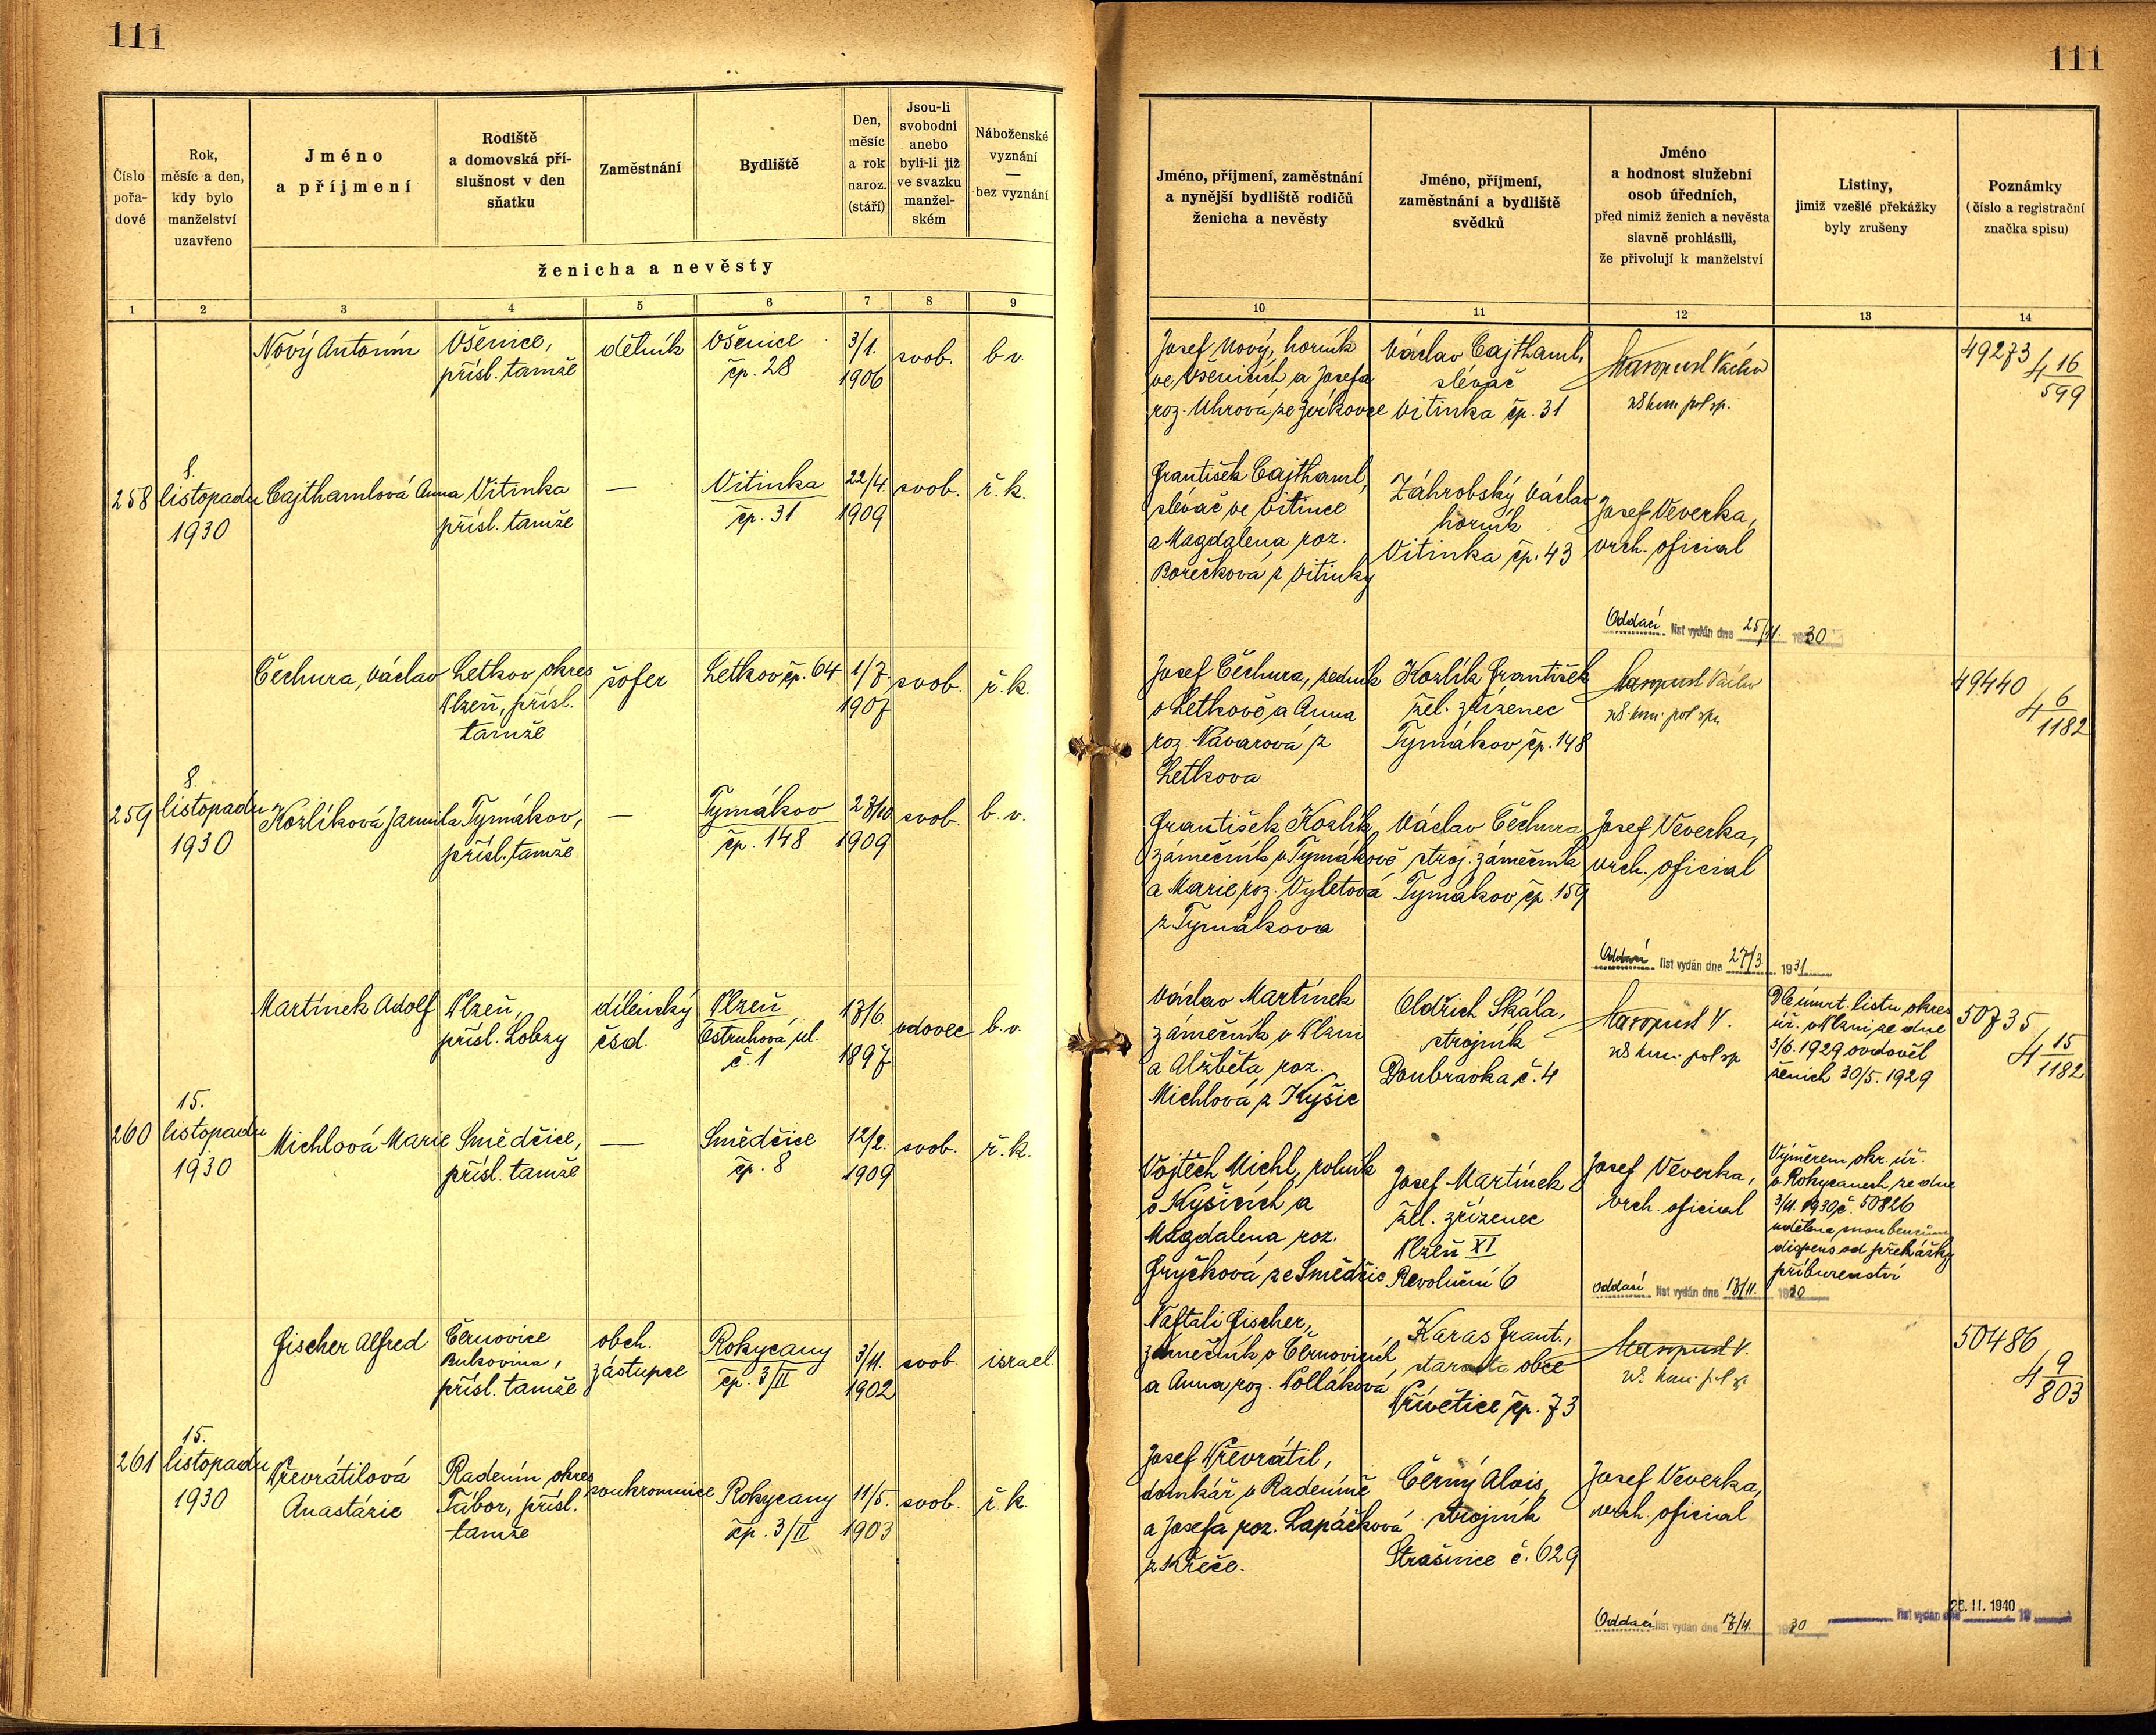 111
Číslo
pořa-
dové
Rok,
měsíc a den,
kdy bylo
manželství
uzavřeno
Jméno
a příjmení
Rodiště
a domovská pří-
slušnost v den
sňatku
Zaměstnání
Bydliště
Den,
měsíc
a rok
naroz.
(stáří)
Jsou-li
svobodni
anebo
byli-li již
ve svazku
manžel-
ském
Náboženské
vyznání
—
bez vyznání
ženicha a nevěsty
1 2 3 4 5 6 7 8 9
Nový Antonín
Všenice,
přísl. tamže
dělník
Všenice
čp. 28
3/1.
1906
svob.
b. v.
258
8.
listopadu
1930
Cajthamlová Anna
Vitinka
přísl. tamže
—
Vitinka
čp. 31
22/4.
1909
svob.
ř. k.
Čechura, Václav
Letkov okres
Plzeň, přísl.
tamže
šofer
Letkov čp. 64
1/7.
1907
svob.
ř. k.
259
8.
listopadu
1930
Kozlíková Jarmila
Tymákov,
přísl. tamže
—
Tymákov
čp. 148
23/10
1909
svob.
b. v.
Martínek Adolf
Plzeň,
přísl. Lobzy
dílenský
čsd.
Plzeň
Ostruhová ul.
č. 1
13/6.
1897
vdovec
b. v.
260
15.
listopadu
1930
Michlová Marie
Smědčice,
přísl. tamže
—
Smědčice
čp. 8
12/2.
1909
svob.
ř. k.
Fischer Alfred
Černovice
Bukovina,
přísl. tamže
obch.
zástupce
Rokycany
čp. 3/II
3/11.
1902
svob.
israel.
261
15.
listopadu
1930
Převrátilová
Anastázie
Radenín okres
Tábor, přísl.
tamže
soukromnice
Rokycany
čp. 3/II
11/5.
1903
svob.
ř. k.
111
Jméno, příjmení, zaměstnání
a nynější bydliště rodičů
ženicha a nevěsty
Jméno, příjmení,
zaměstnání a bydliště
svědků
Jméno
a hodnost služební
osob úředních,
před nimiž ženich a nevěsta
slavně prohlásili,
že přivolují k manželství
Listiny,
jimiž vzešlé překážky
byly zrušeny
Poznámky
(číslo a registrační
značka spisu)
10 11 12 13 14
Josef Nový, horník
ve Všenicích a Josefa
roz. Uhrová ze Zvíkovce
Václav Cajthaml,
slévač
Vitinka čp. 31
Masopust Václav
49273
4 16
599
František Cajthaml,
slévač ve Vitince
a Magdalena roz.
Borečková z Vitinky
Záhrobský Václav
horník
Vitinka čp. 43
Josef Veverka,
vrch. oficial
Oddací list vydán dne 25/11. 1930
Josef Čechura, zedník
v Letkově a Anna
roz. Návarová z
Letkova
Kozlík František
žel. zřízenec
Tymákov čp. 148
Masopust Václav
49440
4 6
1182
František Kozlík
zámečník v Tymákově
a Marie roz. Vyletová
z Tymákova
Václav Čechura
stroj. zámečník
Tymákov čp. 159
Josef Veverka,
vrch. oficial
Oddací list vydán dne 27/3. 1931
Václav Martínek
zámečník v Plzni
a Alžběta roz.
Michlová z Kyšic
Oldřich Skála,
strojník
Doubravka č. 4
Masopust V.
Dle úmrt. listu okres
úř. v Plzni ze dne
3/6. 1929 ovdověl
ženich 30/5. 1929
50735
4 15
1182
Vojtěch Michl, rolník
v Kyšicích a
Magdalena roz.
Fryčková ze Smědčic
Josef Martínek
žel. zřízenec
Plzeň XI
Revoluční 6
Josef Veverka,
vrch. oficial
Výměrem okr. úř.
v Rokycanech ze dne
3/11. 1930 č. 50826
udělena snoubencům
dispens od překážky
příbuzenství
oddací list vydán dne 18/11. 1930
Naftali Fischer,
zámečník v Černovicích
a Anna roz. Polláková
Karas Frant.,
starosta obce
Přívětice čp. 73
Masopust V.
50486
4 9
803
Josef Převrátil,
domkář v Radeníně
a Josefa roz. Lapáčková
z Křeče.
Černý Alois,
strojník
Strašnice č. 629
Josef Veverka,
vrch. oficial
Oddací list vydán dne 17/11. 1930
list vydán dne 26. II. 1940 19